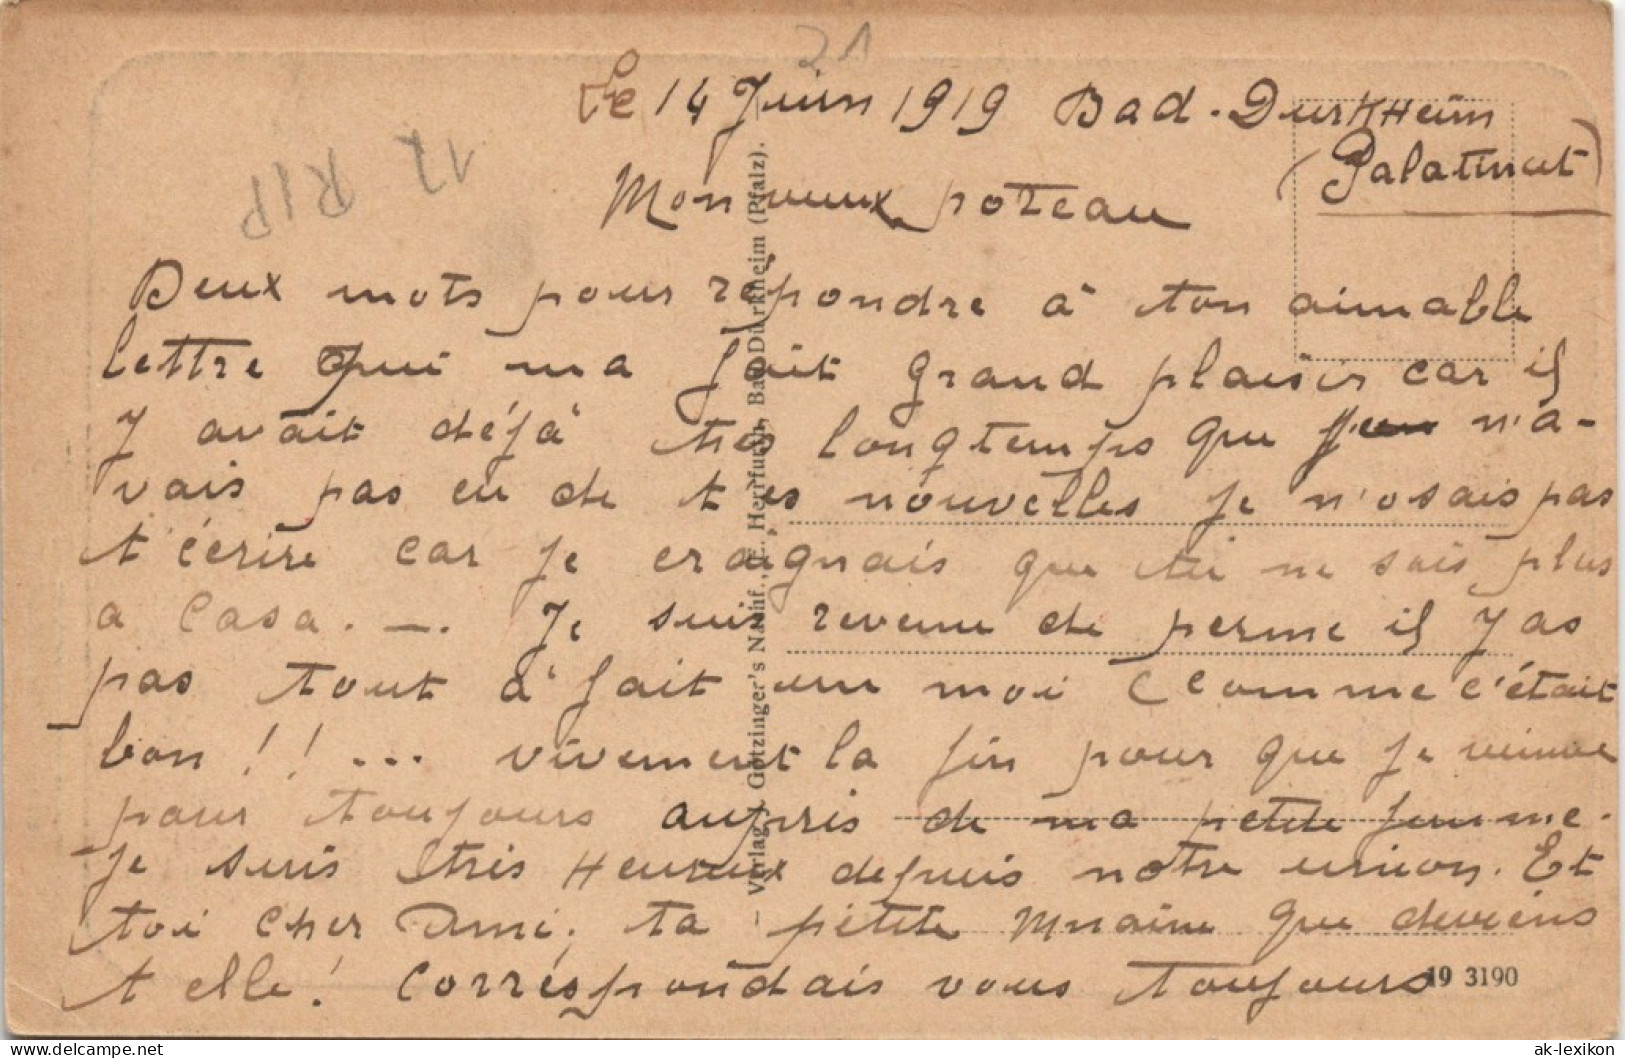 21
Le 14 Juin 1919 Bad-Durkheim
(Palatinat)
12
RIP
Mon vieux poteau
Deux mots pour répondre à ton aimable
lettre qui ma fait grand plaisir car il
y avait déjà très longtemps que n'a-
vais pas eu de tes nouvelles je n'osais pas
t'écrire car je craignais que tu ne sois plus
a Casa. —. Je suis revenu de perme il y as
pas tout à fait un moi Ccomme c'était
bon!! ... vivement la fin pour que je
pour toujours aupris de ma petite femme.
je suis très Heureux depuis notre union. Et
toi cher Ami, ta petite que deviens
t elle! Correspondais vous toujours
— Verlag J. Götzinger's Nachf., E. Herrfurth, Bad Dürkheim (Pfalz).
19 3190
hippostcard.com
ak-lexikon.com